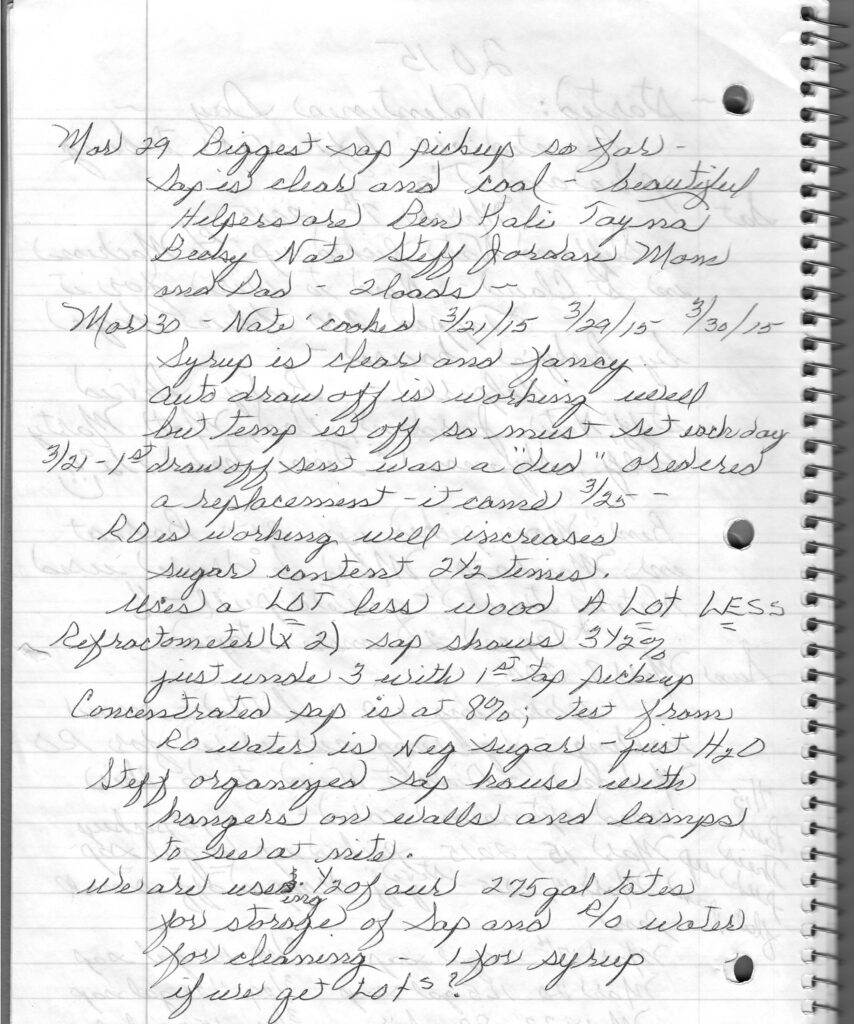 2015
Mar 29 Biggest sap pickup so far -
Sap is clear and cool - beautiful
Helpers are Ben Kali Tayna
Betsy Nate Steff Jordan Mom
and Dad - 2 loads -
Mar 30 - Nate cooked 3/21/15 3/29/15 3/30/15
Syrup is clear and fancy.
auto draw off is working well
but temp is off so must set each day
3/21 - 1st draw off sent was a "dud" oredered
a replacement - it came 3/25 -
RO is working well increases
sugar content 2 1/2 times.
Uses a LOT less wood A LOT LESS
Refractometer (x 2) sap shows 3 1/2%
just unde 3 with 1st tap pickup
Concentrated sap is at 8%; test from
RO water is Neg sugar - just H2O
Steff organized sap house with
hangers on walls and lamps
to see at nite.
We are using 1/2 of our 275 gal totes
for storage of sap and R/O water
for cleaning - 1 for syrup
if we get Lots?